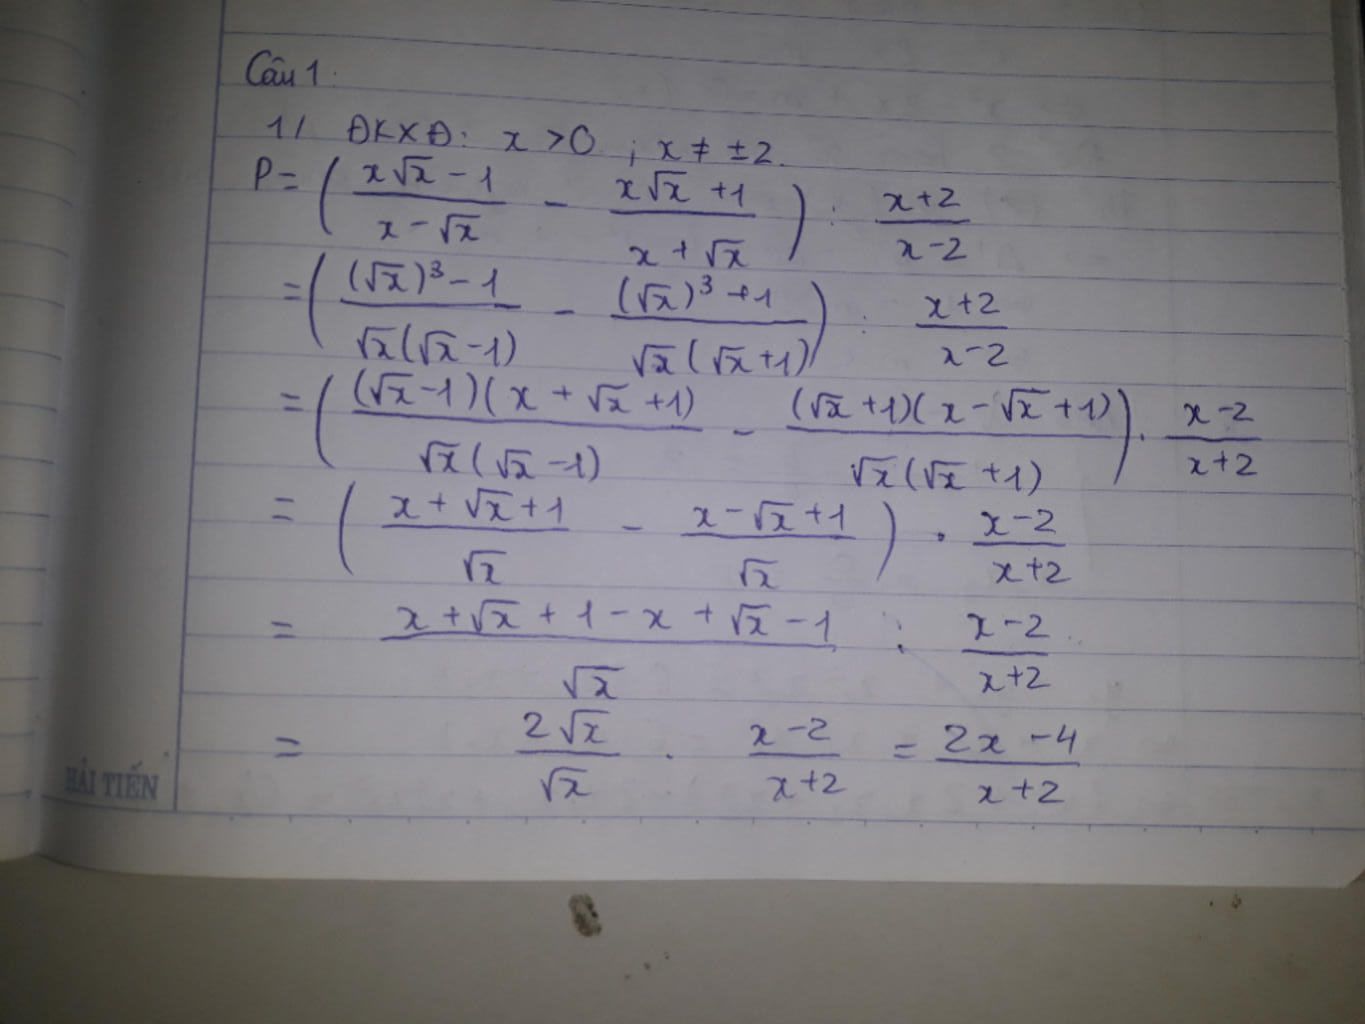 Câu 1:
1/ ĐKXĐ: x > 0 ; x ≠ ±2.
P = ( (x√x - 1)/(x - √x) - (x√x + 1)/(x + √x) ) : (x+2)/(x-2)
= ( ((√x)³ - 1)/(√x(√x - 1)) - ((√x)³ + 1)/(√x(√x + 1)) ) : (x+2)/(x-2)
= ( ((√x - 1)(x + √x + 1))/(√x(√x - 1)) - ((√x + 1)(x - √x + 1))/(√x(√x + 1)) ) . (x-2)/(x+2)
= ( (x + √x + 1)/√x - (x - √x + 1)/√x ) . (x-2)/(x+2)
= (x + √x + 1 - x + √x - 1)/√x : (x-2)/(x+2)
= 2√x/√x . (x-2)/(x+2) = (2x - 4)/(x+2)
HẢI TIẾN